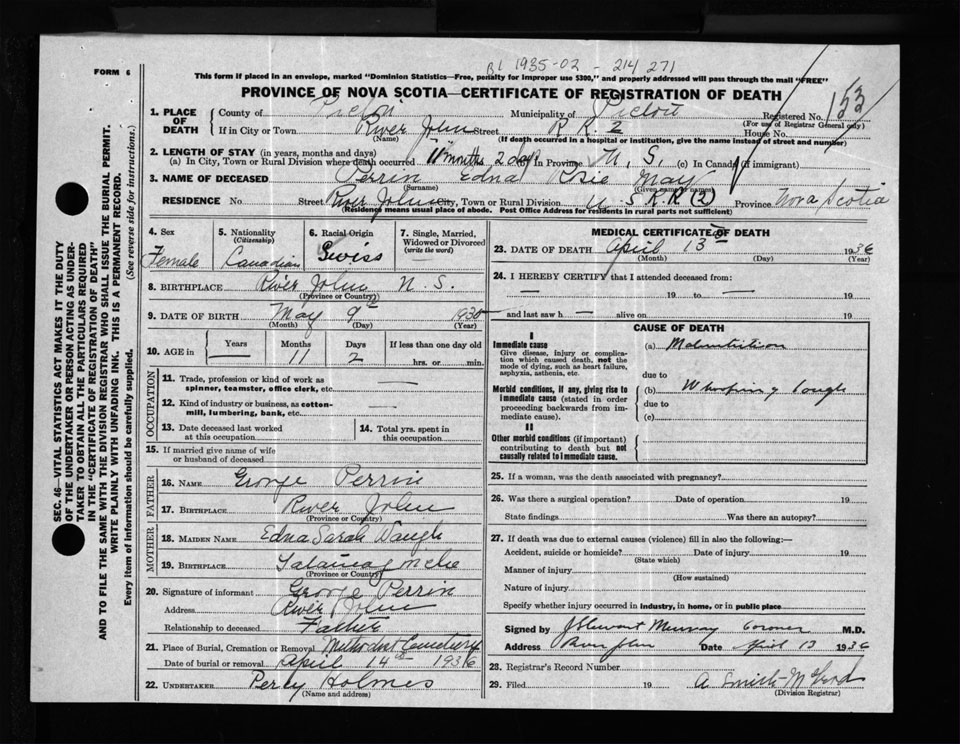 1935-02 - 214271
FORM 6
This form if placed in an envelope, marked "Dominion Statistics—Free, penalty for improper use $300," and properly addressed will pass through the mail "FREE"
PROVINCE OF NOVA SCOTIA—CERTIFICATE OF REGISTRATION OF DEATH
153
1. PLACE OF DEATH County of Pictou Municipality of Pictou Registered No.
(For use of Registrar General only)
If in City or Town River John Street R. R. 2 House No.
(If death occurred in a hospital or institution, give the name instead of street and number)
2. LENGTH OF STAY (in years, months and days)
(a) In City, Town or Rural Division where death occurred 11 months 2 days In Province N. S. (c) In Canada (if immigrant)
3. NAME OF DECEASED Perrin Edna Rosie May
(Surname) (Given name or names)
RESIDENCE No. Street River John City, Town or Rural Division R.R (2) Province Nova Scotia
(Residence means usual place of abode. Post Office Address for residents in rural parts not sufficient)
4. Sex Female
5. Nationality (Citizenship) Canadian
6. Racial Origin Swiss
7. Single, Married, Widowed or Divorced (write the word) —
8. BIRTHPLACE River John N. S.
(Province or Country)
9. DATE OF BIRTH May 9th 1935
(Month) (Day) (Year)
10. AGE in Years — Months 11 Days 2 If less than one day old hrs. or min.
OCCUPATION
11. Trade, profession or kind of work as spinner, teamster, office clerk, etc. —
12. Kind of industry or business, as cotton-mill, lumbering, bank, etc. —
13. Date deceased last worked at this occupation
14. Total yrs. spent in this occupation
15. If married give name of wife or husband of deceased
FATHER
16. NAME George Perrin
17. BIRTHPLACE River John
(Province or Country)
MOTHER
18. MAIDEN NAME Edna Sarah Waugh
19. BIRTHPLACE Tatamagouche
(Province or Country)
20. Signature of informant George Perrin
Address River John
Relationship to deceased Father
21. Place of Burial, Cremation or Removal Methodist Cemetery
Date of burial or removal April 14th 1936
22. UNDERTAKER Percy Holmes
(Name and address)
MEDICAL CERTIFICATE OF DEATH
23. DATE OF DEATH April 13th 1936
(Month) (Day) (Year)
24. I HEREBY CERTIFY that I attended deceased from:
— 19 to — 19
and last saw h — alive on 19
CAUSE OF DEATH
I
Immediate cause
Give disease, injury or complication which caused death, not the mode of dying, such as heart failure, asphyxia, asthenia, etc.
(a) Malnutrition
due to
Morbid conditions, if any, giving rise to immediate cause (stated in order proceeding backwards from immediate cause).
(b) Whooping Cough
due to
(c)
II
Other morbid conditions (if important) contributing to death but not causally related to immediate cause.
25. If a woman, was the death associated with pregnancy?
26. Was there a surgical operation? Date of operation 19
State findings Was there an autopsy?
27. If death was due to external causes (violence) fill in also the following:—
Accident, suicide or homicide? Date of injury 19
(State which)
Manner of injury
(How sustained)
Nature of injury
Specify whether injury occurred in industry, in home, or in public place
Signed by J Stewart Murray Coroner M.D.
Address River John Date April 13 1936
28. Registrar's Record Number
29. Filed 19 A Smith
(Division Registrar)
SEC. 46—VITAL STATISTICS ACT MAKES IT THE DUTY
OF THE UNDERTAKER OR PERSON ACTING AS UNDER-
TAKER TO OBTAIN ALL THE PARTICULARS REQUIRED
IN THE "CERTIFICATE OF REGISTRATION OF DEATH"
AND TO FILE THE SAME WITH THE DIVISION REGISTRAR WHO SHALL ISSUE THE BURIAL PERMIT.
WRITE PLAINLY WITH UNFADING INK. THIS IS A PERMANENT RECORD.
Every item of information should be carefully supplied. (See reverse side for instructions.)